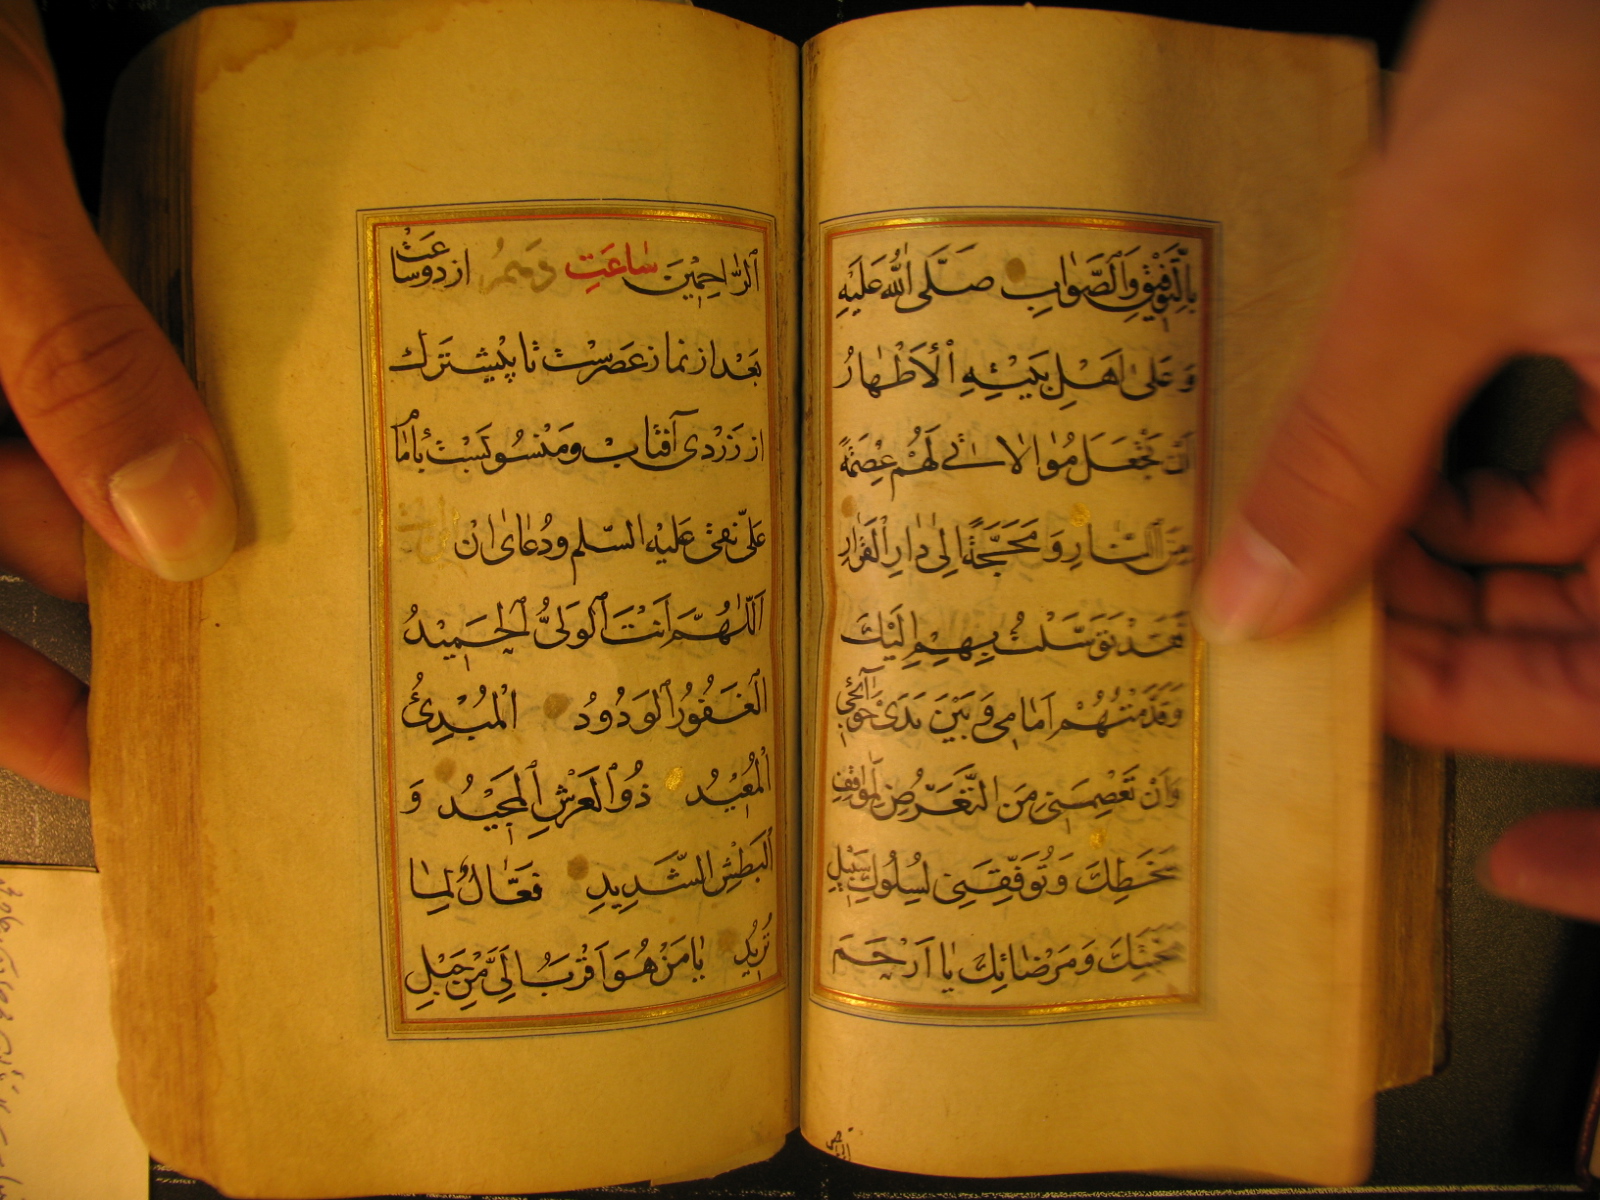 بِالتَّوْفِيْقِ وَالصَّوٰابِ صَلَّى اللّٰهُ عَلَيْهِ
وَ عَلىٰ اَهْلِ بَيْتِهِ الْأَطْهٰارُ
اَنْ تَجْعَلَ مُوٰالاٰتي لَهُمْ عِصْمَةً
مِنَ النّٰارِ وَ مَحَجَّةً اِلىٰ دٰارِ الْقَرٰارِ
فَقَدْ تَوَسَّلْتُ بِهِمْ اِلَيْكَ
وَ قَدَّمْتُهُمْ اَمٰامي وَ بَيْنَ يَدَىْ حَوٰآئِجي
وَ اَنْ تَعْصِمَني مِنَ التَّعَرُّضِ لِمَوٰاقِفِ
سَخَطِكَ وَ تُوَفِّقَني لِسُلُوكِ سَبيْلِ
مَحَبَّتِكَ وَ مَرْضٰاتِكَ يٰا اَرْحَمَ
الرّٰاحِمْيْنَ سٰاعَتِ دَهُمْ از دو ساعَتْ
بَعْد از نماز عَصرسْتْ تا پيْشتَرَك
از زَرْدى آفتابْ وَ مَنْسُوبَستْ بٔامٰام
عَلىّ نَقىْ عَلَيْهِ السّلٰم و دُعٰاى اٰنْ
اَللّٰهُمَّ اَنْتَ الْوَلىُّ الْحَميْدُ
الْغَفُورُ الْوَدُودُ الْمُبْدِئُ
الْمُعيْدُ ذُو الْعَرْشِ الْمَجيْدُ وَ
الْبَطْشِ الشَّديدِ فَعّٰالٌ لِمٰا
تُريْدُ يٰا مَنْ هُوَ اَقْرَبُ اِلَىَّ مِنْ حَبْلِ